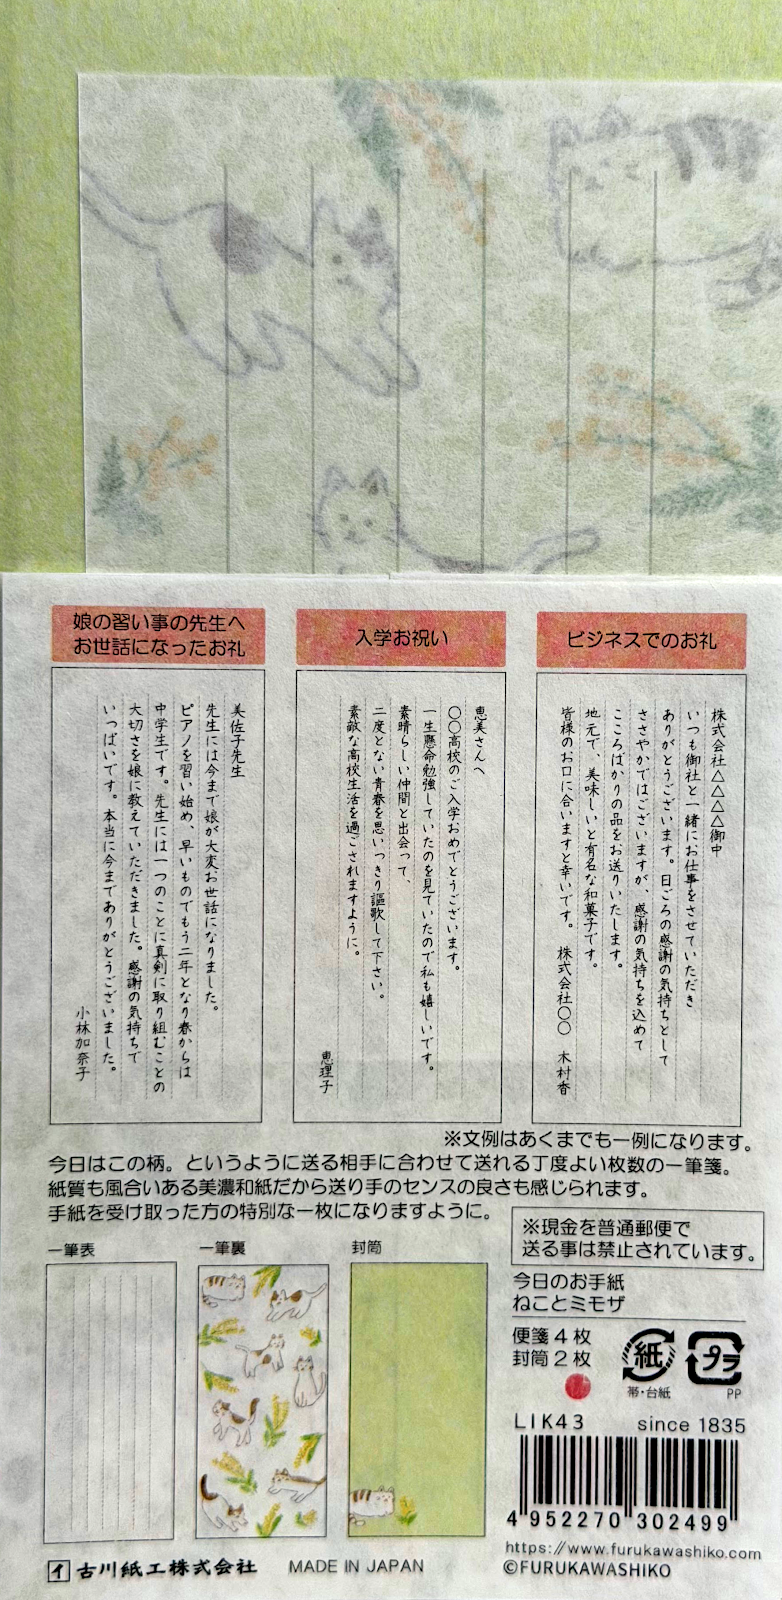 娘の習い事の先生へ
お世話になったお礼
美佐子先生
先生には今まで娘が大変お世話になりました。
ピアノを習い始め、早いものでもう二年となり春からは
中学生です。先生には一つのことに真剣に取り組むことの
大切さを娘に教えていただきました。感謝の気持ちで
いっぱいです。本当に今までありがとうございました。
小林加奈子
入学お祝い
恵美さんへ
〇〇高校のご入学おめでとうございます。
一生懸命勉強していたのを見ていたので私も嬉しいです。
素晴らしい仲間と出会って、
二度とない青春を思いっきり謳歌して下さい。
素敵な高校生活を過ごされますように。
恵理子
ビジネスでのお礼
株式会社△△△△御中
いつも御社と一緒にお仕事をさせていただき
ありがとうございます。日ごろの感謝の気持ちとして
ささやかではございますが、感謝の気持ちを込めて
こころばかりの品をお送りいたします。
地元で、美味しいと有名な和菓子です。
皆様のお口に合いますと幸いです。 株式会社〇〇 木村香
※文例はあくまでも一例になります。
今日はこの柄。というように送る相手に合わせて送れる丁度よい枚数の一筆箋。
紙質も風合いある美濃和紙だから送り手のセンスの良さも感じられます。
手紙を受け取った方の特別な一枚になりますように。
※現金を普通郵便で
送る事は禁止されています。
一筆表
一筆裏
封筒
今日のお手紙
ねことミモザ
便箋4枚
封筒2枚
紙
帯・台紙
プラ
PP
LIK43 since 1835
4 952270 302499
https://www.furukawashiko.com
©FURUKAWASHIKO
イ 古川紙工株式会社 MADE IN JAPAN